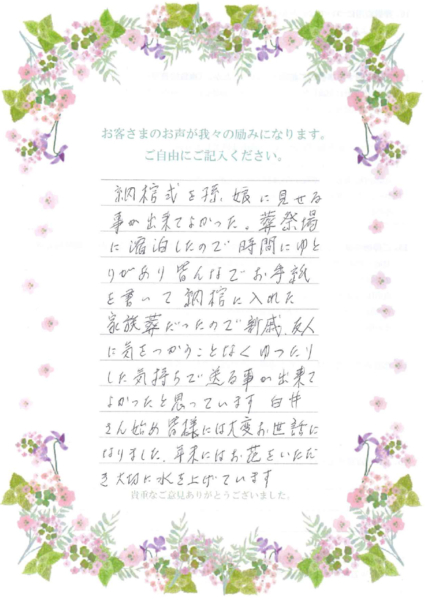 お客さまのお声が我々の励みになります。
ご自由にご記入ください。
納棺式を孫、娘に見せる
事が出来てよかった。葬祭場
に宿泊したので時間にゆと
りがあり皆んなでお手紙
を書いて納棺に入れた
家族葬だったので親戚、友人
に気をつかうことなくゆったり
した気持ちで送る事が出来て
よかったと思っています 臼井
さん始め皆様には大変お世話に
なりました、年末にはお花をいただ
き大切に水を上げています
貴重なご意見ありがとうございました。